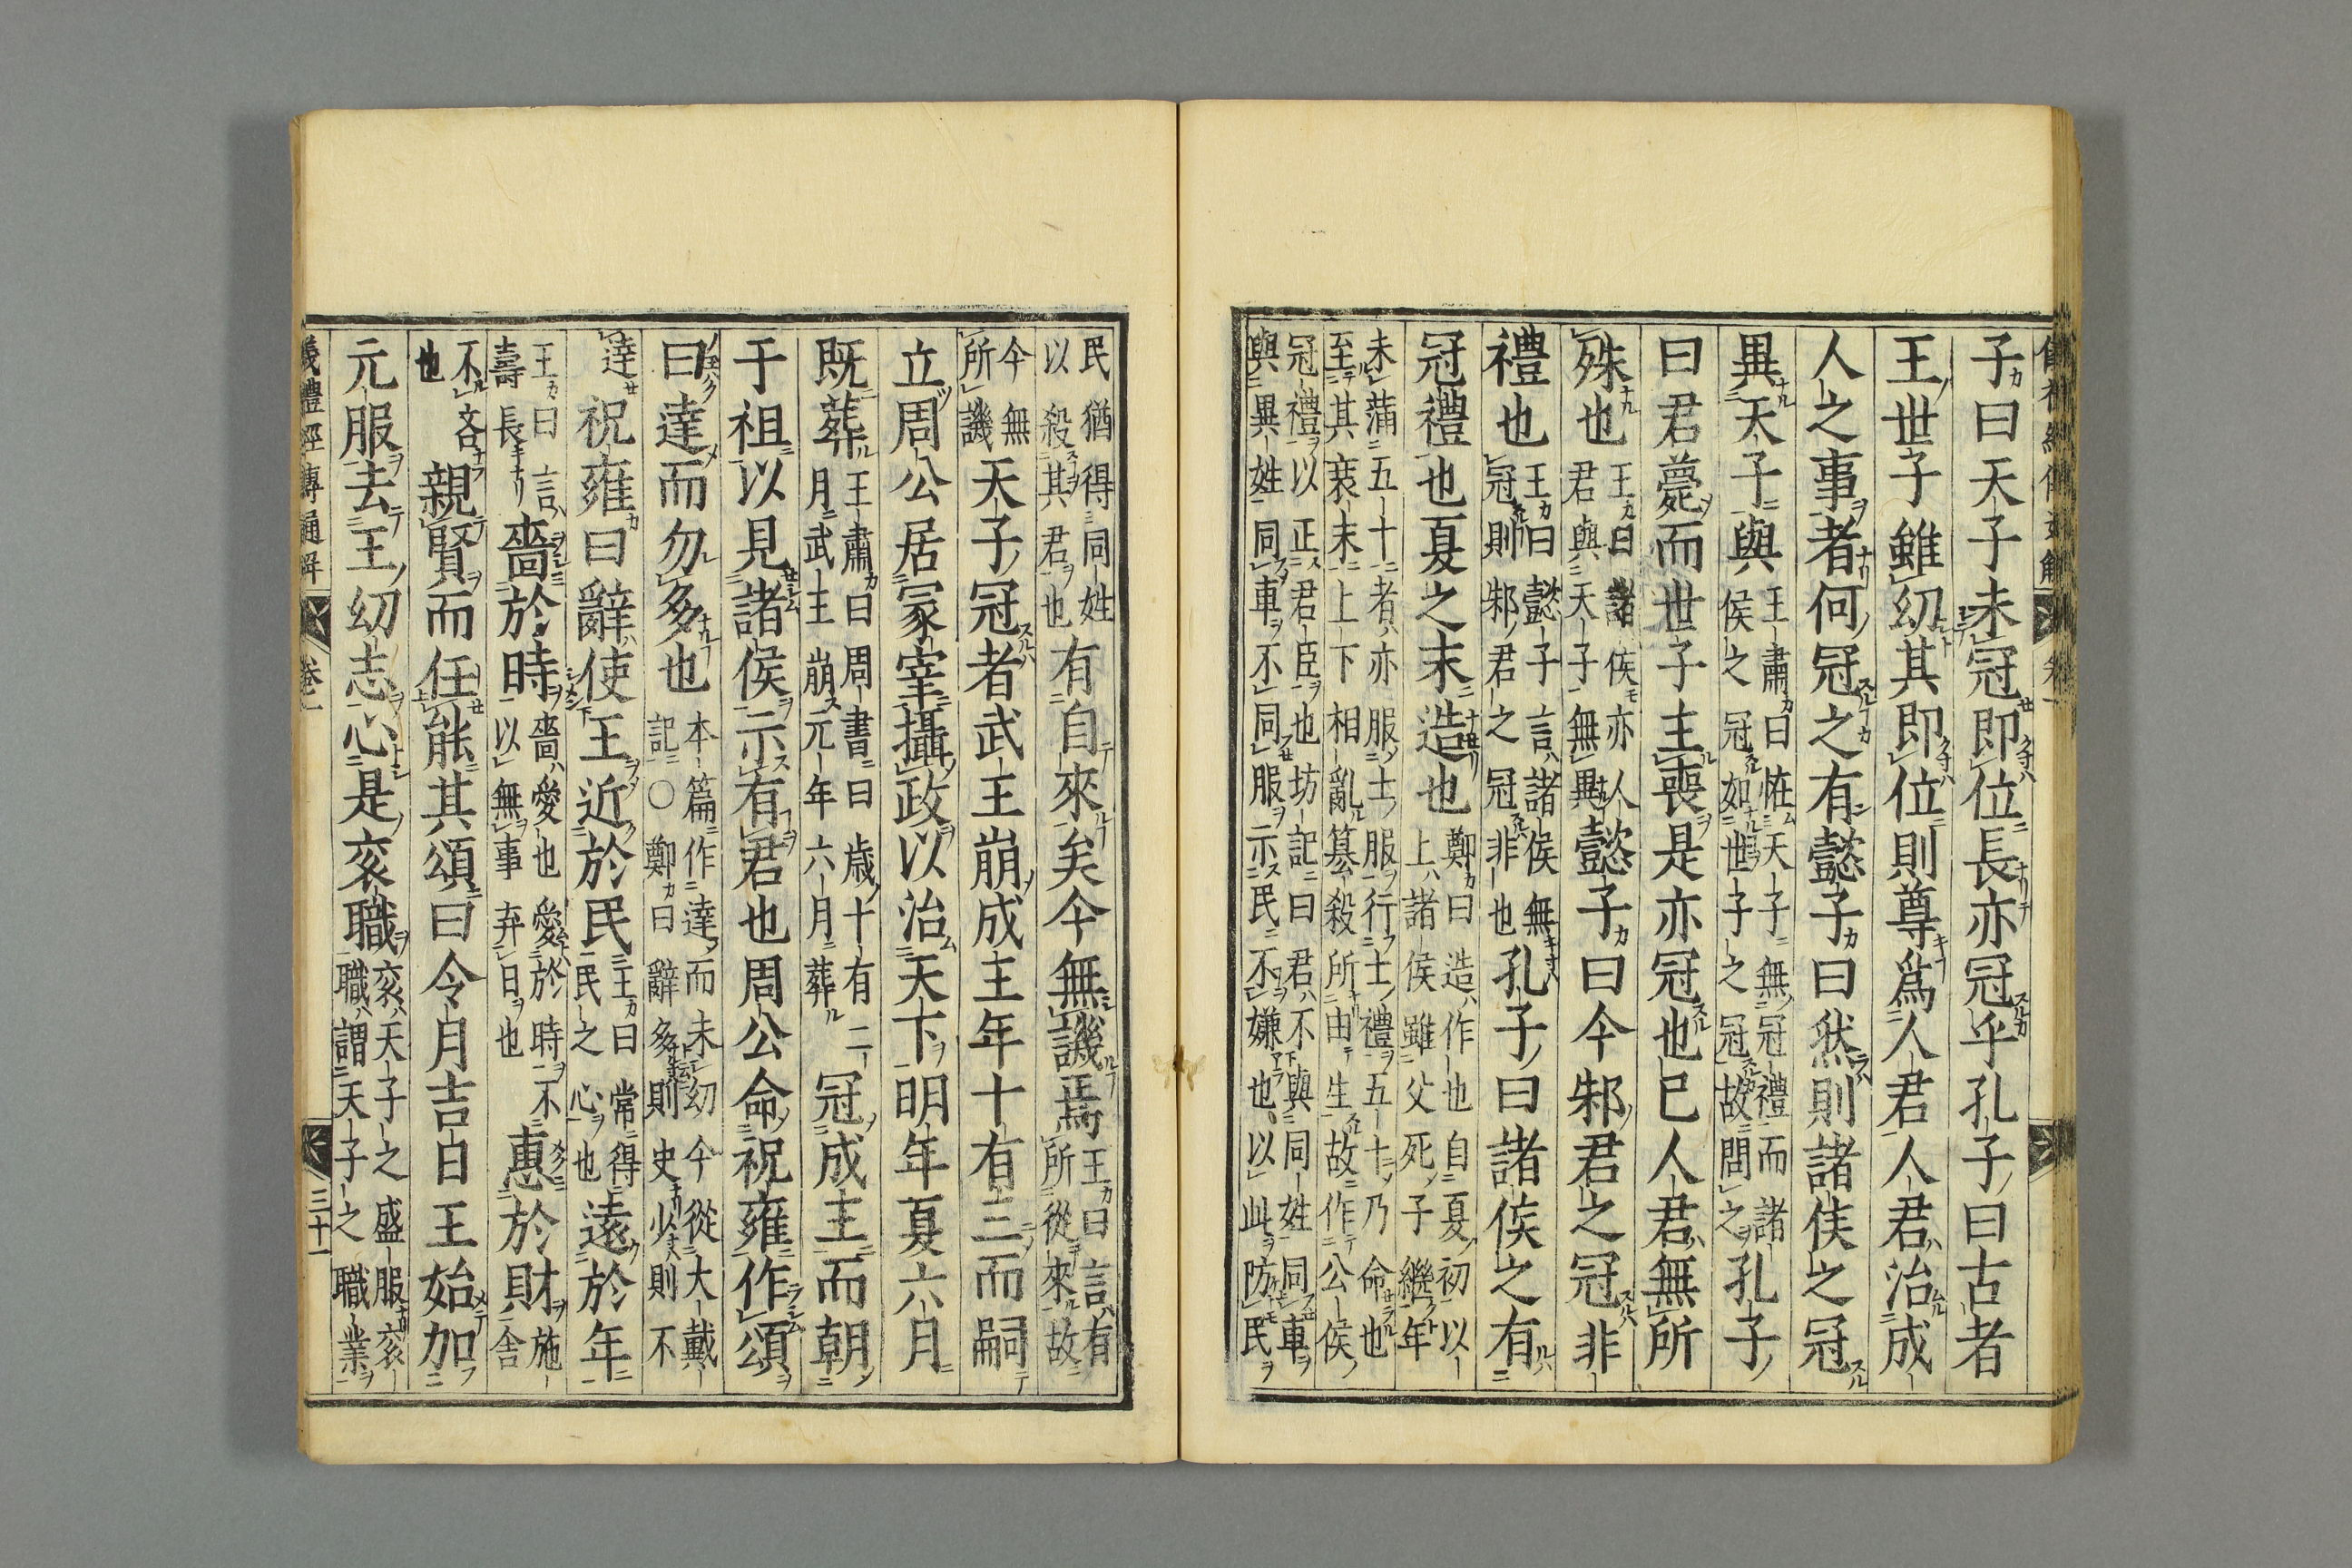 子曰天子未冠即位長亦冠乎孔子曰古者
王世子雖幼其即位則尊爲人君人君治成
人之事者何冠之有懿子曰然則諸侯之冠
異天子與王肅曰恠天子無冠禮而諸侯之冠如世子之冠故問之孔子
曰君薨而世子主喪是亦冠也已人君無所
殊也王曰諸侯亦人君與天子無異懿子曰今邾君之冠非
禮也王曰懿子言諸侯無冠則邾君之冠非也孔子曰諸侯之有
冠禮也夏之末造也鄭曰造作也自夏初以上諸侯雖父死子繼年
未蒲五十者亦服士服行士禮五十乃命也至其衰末上下相亂簒殺所由生故作公侯
冠禮以正君臣也坊記曰君不與同姓同車與異姓同車不同服示民不嫌也以此防民
民猶得同姓以殺其君也有自來矣今無譏焉王曰言有所從來故
今無所譏天子冠者武王崩成王年十有三而嗣
立周公居冢宰攝政以治天下明年夏六月
既葬王肅曰周書曰歳十有二月武王崩元年六月葬冠成王而朝
于祖以見諸侯示有君也周公命祝雍作頌
曰達而勿多也本篇作達而未幼今從大戴記○鄭曰辭多則史少則不
達祝雍曰辭使王近於民王曰常得民之心也遠於年
王曰言壽長嗇於時嗇愛也愛於時不以無事弃日也惠於財施舍
不吝也親賢而任能其頌曰令月吉日王始加
元服去王幼志心是衮職衮天子之盛服衮職謂天子之職業
儀禮經傳通解
卷一
三十一